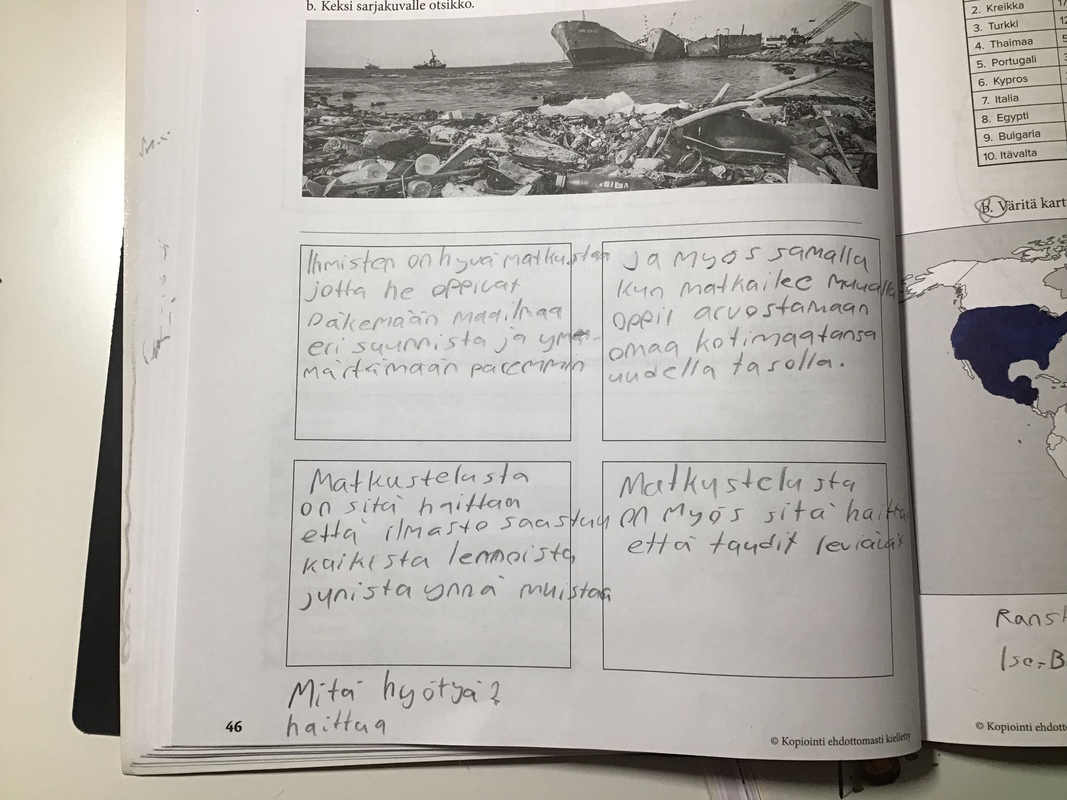 b. Keksi sarjakuvalle otsikko.
Ihmisten on hyvä matkustaa
jotta he oppivat
näkemään maailmaa
eri suunnista ja ymä-
märtämään paremmin
ja myös samalla
kun matkailee muualla
oppii arvostamaan
omaa kotimaatansa
uudella tasolla.
Matkustelusta
on sitä haittaa
että ilmasto saastuu
kaikista lennoista
junista ynnä muistaa
Matkustelusta
on myös sitä haittaa
että taudit leviävät
Mitä hyötyä?
haittaa
46
© Kopiointi ehdottomasti kielletty
2. Kreikka
3. Turkki
4. Thaimaa
5. Portugali
6. Kypros
7. Italia
8. Egypti
9. Bulgaria
10. Itävalta
b. Väritä kart
Ransk
Iso-B
© Kopiointi ehdotto